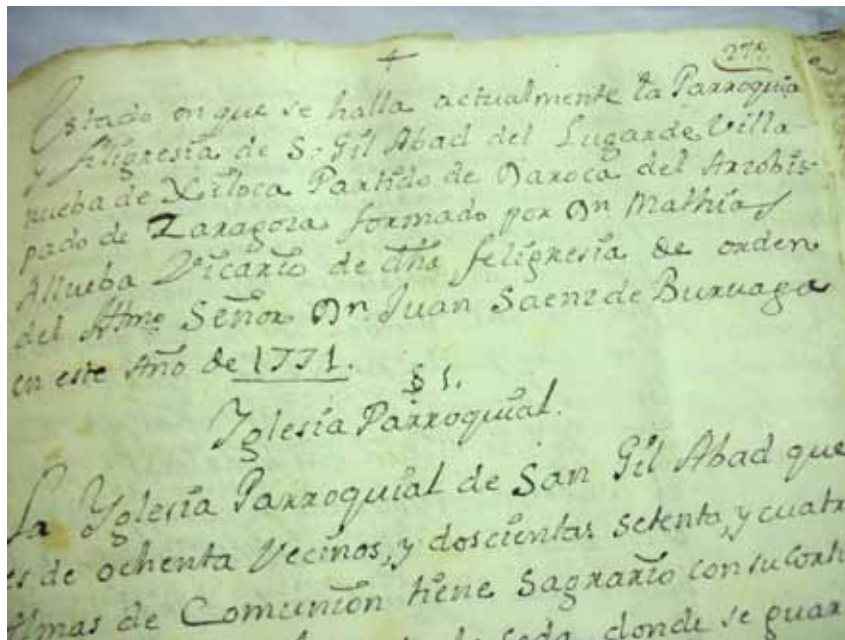 274.
Estado en que se halla actualmente la Parroquia
y feligresia de Sn. Gil Abad del Lugar de Villa-
nueba de Xiloca Partido de Daroca del Arzobis-
pado de Zaragoza formado por Dn Mathias
Allueba Vicario de dha feligresia de orden
del Illmo Señor Dn Juan Saenz de Buruaga
en este Año de 1771.
§ 1.
Yglesia Parroquial.
La Yglesia Parroquial de San Gil Abad que
es de ochenta Vecinos, y doscientas setenta, y cuatr
Almas de Comunion tiene Sagrario con su
seda, donde se guar